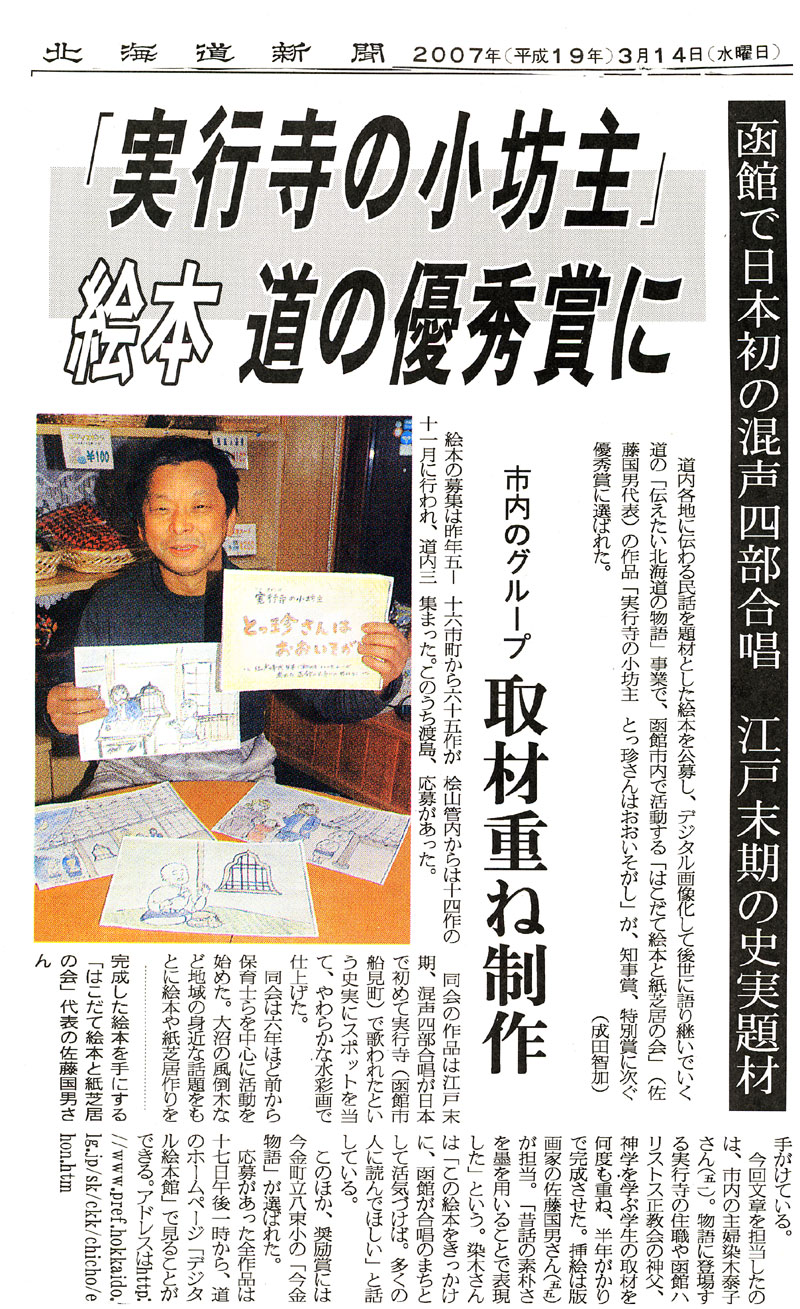 北海道新聞 2007年(平成19年)3月14日(水曜日)
函館で日本初の混声四部合唱　江戸末期の史実題材
「実行寺の小坊主」
絵本 道の優秀賞に
市内のグループ
取材重ね制作
道内各地に伝わる民話を題材とした絵本を公募し、デジタル画像化して後世に語り継いでいく
道の「伝えたい北海道の物語」事業で、函館市内で活動する「はこだて絵本と紙芝居の会」（佐
藤国男代表）の作品「実行寺の小坊主　とっ珍さんはおおいそがし」が、知事賞、特別賞に次ぐ
優秀賞に選ばれた。
（成田智加）
絵本の募集は昨年五―
十一月に行われ、道内三
十六市町から六十五作が
集まった。このうち渡島、
桧山管内からは十四作の
応募があった。
同会の作品は江戸末
期、混声四部合唱が日本
で初めて実行寺（函館市
船見町）で歌われたとい
う史実にスポットを当
て、やわらかな水彩画で
仕上げた。
同会は六年ほど前から
保育士らを中心に活動を
始めた。大沼の風倒木な
ど地域の身近な話題をも
とに絵本や紙芝居作りを
手がけている。
今回文章を担当したの
は、市内の主婦染木泰子
さん（五一）。物語に登場す
る実行寺の住職や函館ハ
リストス正教会の神父、
神学を学ぶ学生の取材を
何度も重ね、半年がかり
で完成させた。挿絵は版
画家の佐藤国男さん（五五）
が担当。「昔話の素朴さ
を墨を用いることで表現
した」という。染木さん
は「この絵本をきっかけ
に、函館が合唱のまちと
して活気づけば。多くの
人に読んでほしい」と話
している。
このほか、奨励賞には
今金町立八束小の「今金
物語」が選ばれた。
応募があった全作品は
十七日午後一時から、道
のホームページ「デジタ
ル絵本館」で見ることが
できる。アドレスはhttp:
//www.pref.hokkaido.
lg.jp/sk/ckk/chicho/e
hon.htm
完成した絵本を手にする
「はこだて絵本と紙芝居
の会」代表の佐藤国男さ
ん
¥100
実行寺の小坊主
とっ珍さんは
おおいそが